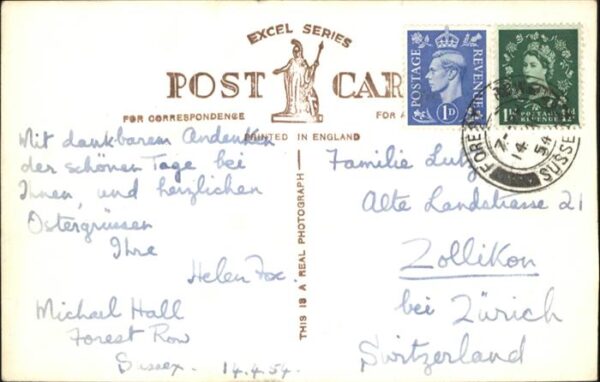 EXCEL SERIES
POST CAR
FOR CORRESPONDENCE
FOR A
PRINTED IN ENGLAND
THIS IS A REAL PHOTOGRAPH
POSTAGE
REVENUE
1D
POSTAGE
REVENUE
FOREST
SUSSE
14
54
Mit dankbarem Andenken
der schönen Tage bei
Ihnen, und herzlichen
Ostergrüssen
Ihre
Helen Fox.
Michael Hall
Forest Row
Sussex. 14.4.54.
Familie Lutz
Alte Landstrasse 21
Zollikon
bei Zürich
Switzerland